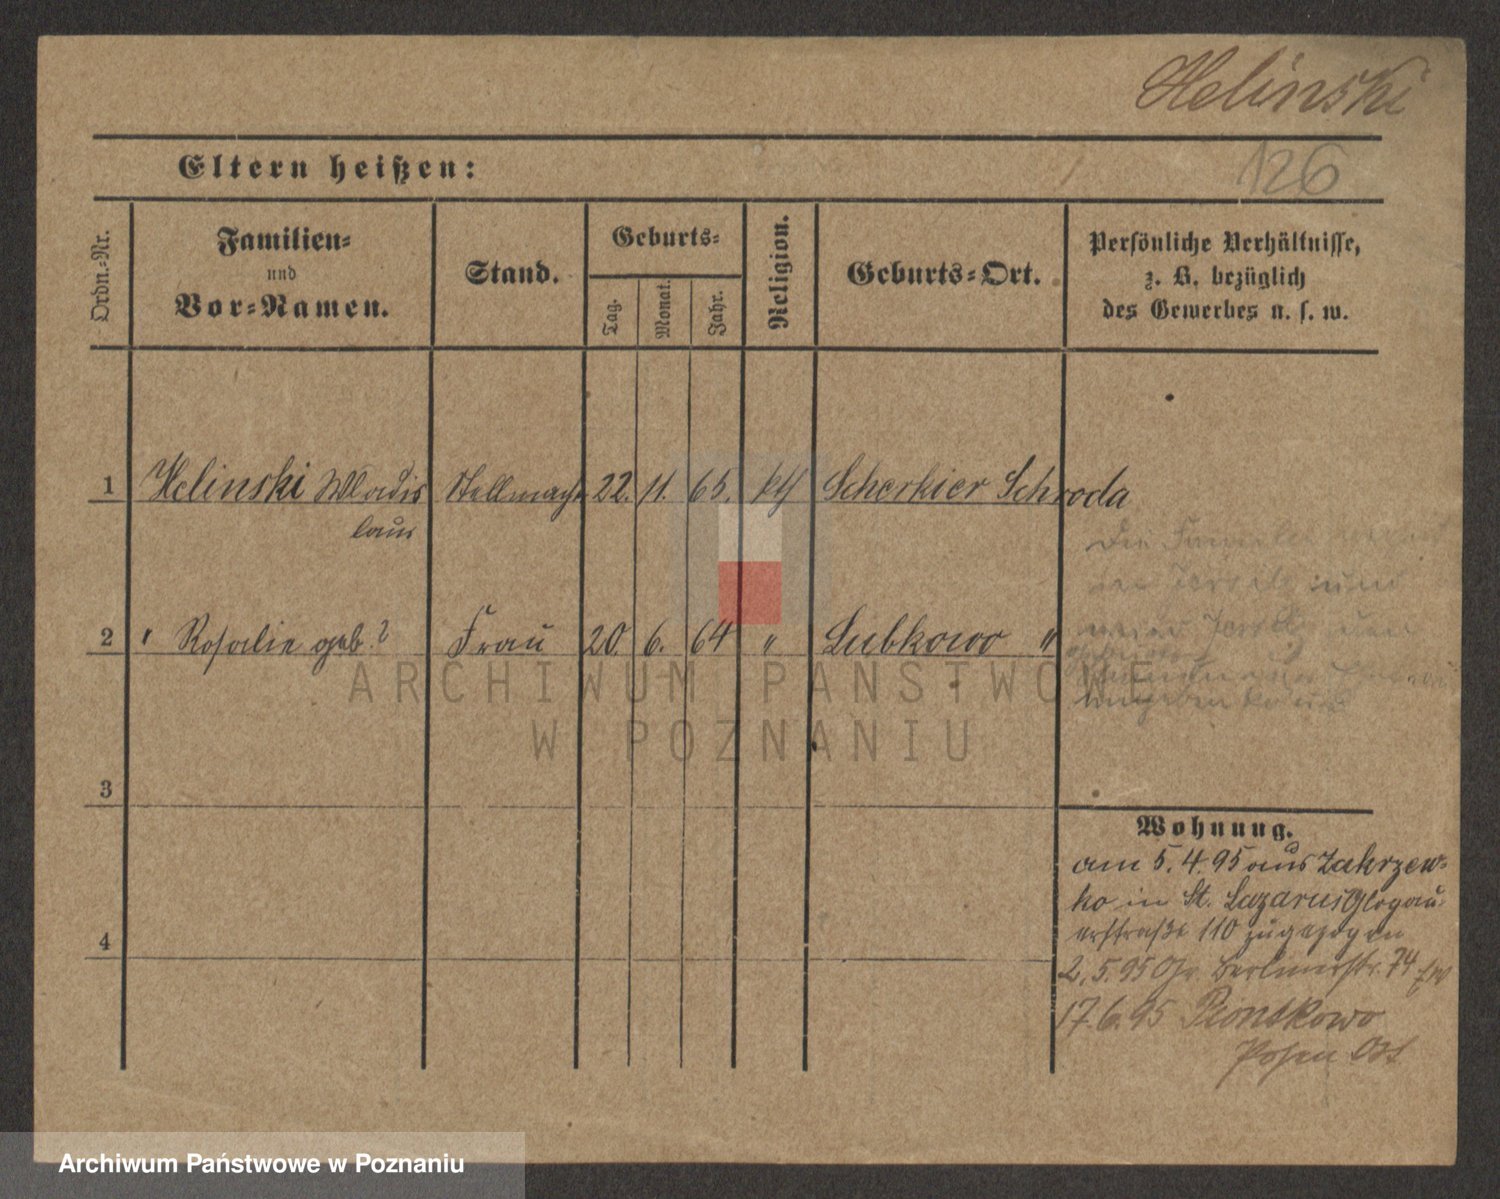 Helinski
Eltern heißen:
126
Ordn.-Nr.
Familien-
und
Vor-Namen.
Stand.
Geburts-
Tag.
Monat.
Jahr.
Religion.
Geburts-Ort.
Persönliche Verhältnisse,
z. B. bezüglich
des Gewerbes u. s. w.
1 Helinski Wladis Stellmach 22. 11. 65. kth Scherkier Schroda
laus
2 " Rosalie geb. ? Frau 20. 6. 64 " Lubkowo "
Die Familie
in und
3
4
Wohnung.
am 5.4.95 aus Zakrzew-
ko in St. Lazarus Glogau-
erstraße 110 zugezogen
2.5.95 Gr. Berlinerstr. 74
17.6.95 Piontkowo
Posen Ost
ARCHIWUM PAŃSTWOWE
W POZNANIU
Archiwum Państwowe w Poznaniu